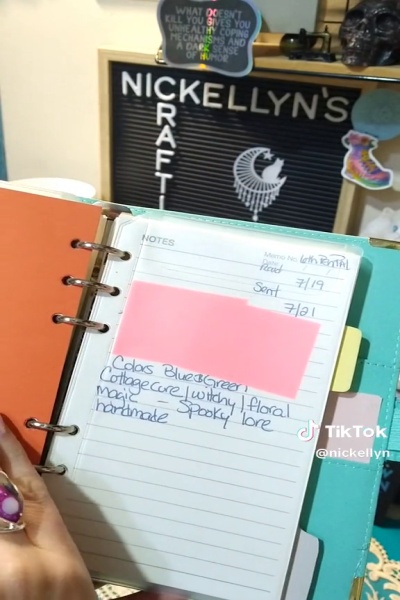 WHAT DOESN'T
KILL YOU GIVES YOU
UNHEALTHY COPING
MECHANISMS AND
A DARK SENSE
OF HUMOR
NICKELLYN'S
CRAFTI
NOTES
Memo No.
Read 7/19
Sent
7/21
Colors Blue&Green
Cottagecore/witchy/floral
magic - Spooky lore
handmade
TikTok
@nickellyn